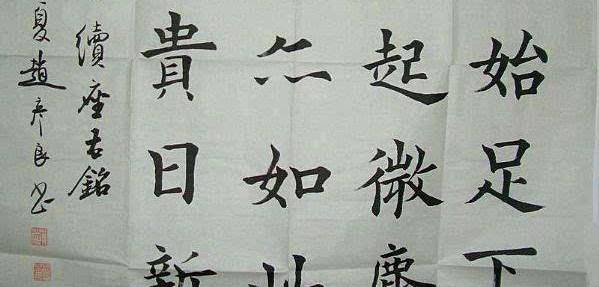 始足下
起微塵
亦如此
貴日新
續座右銘
夏趙彦良书